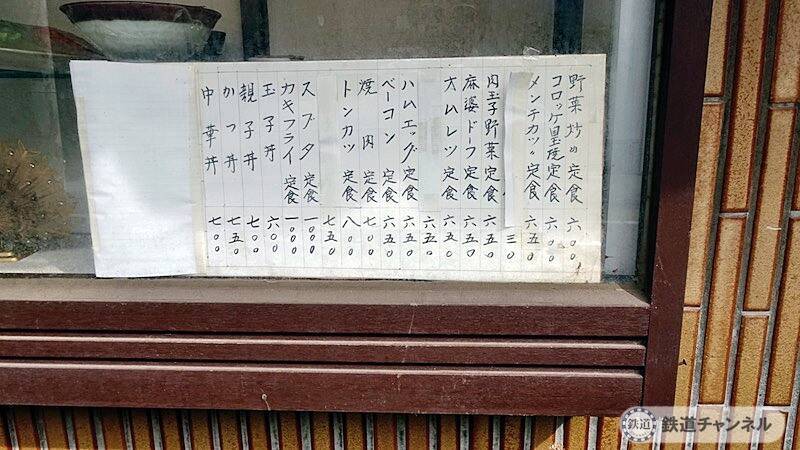 野菜炒め定食 六〇〇
コロッケ目玉焼定食 六〇〇
メンチカツ定食 六五〇
三〇
肉玉子野菜定食 六五〇
麻婆ドーフ定食 六五〇
オムレツ定食 六五〇
六五〇
ハムエッグ定食 六五〇
ベーコン定食 六五〇
焼肉定食 七〇〇
トンカツ定食 八〇〇
七五〇
スブタ定食 一〇〇〇
カキフライ定食 一〇〇〇
玉子丼 六〇〇
親子丼 七〇〇
かつ丼 七五〇
中華丼 七〇〇
鉄道 鉄道チャンネル